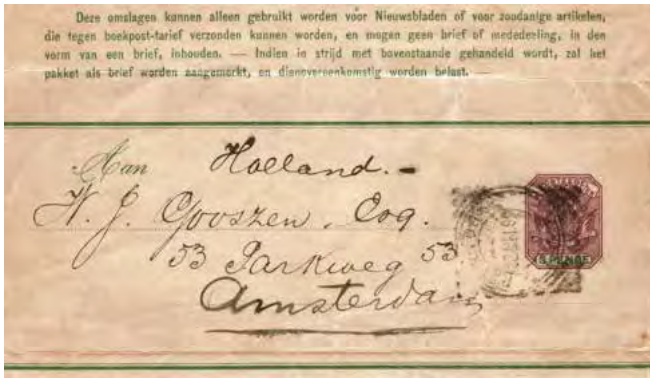 Deze omslagen kunnen alleen gebruikt worden voor Nieuwsbladen of voor zoodanige artikelen,
die tegen boekpost-tarief verzonden kunnen worden, en mogen geen brief of mededeeling, in den
vorm van een brief, inhouden. — Indien in strijd met bovenstaande gehandeld wordt, zal het
pakket als brief worden aangemerkt, en dienovereenkomstig worden belast. —
Aan Holland. –
W. J. Gooszen, Esq.
53 Parkweg 53
Amsterdam
PENCE